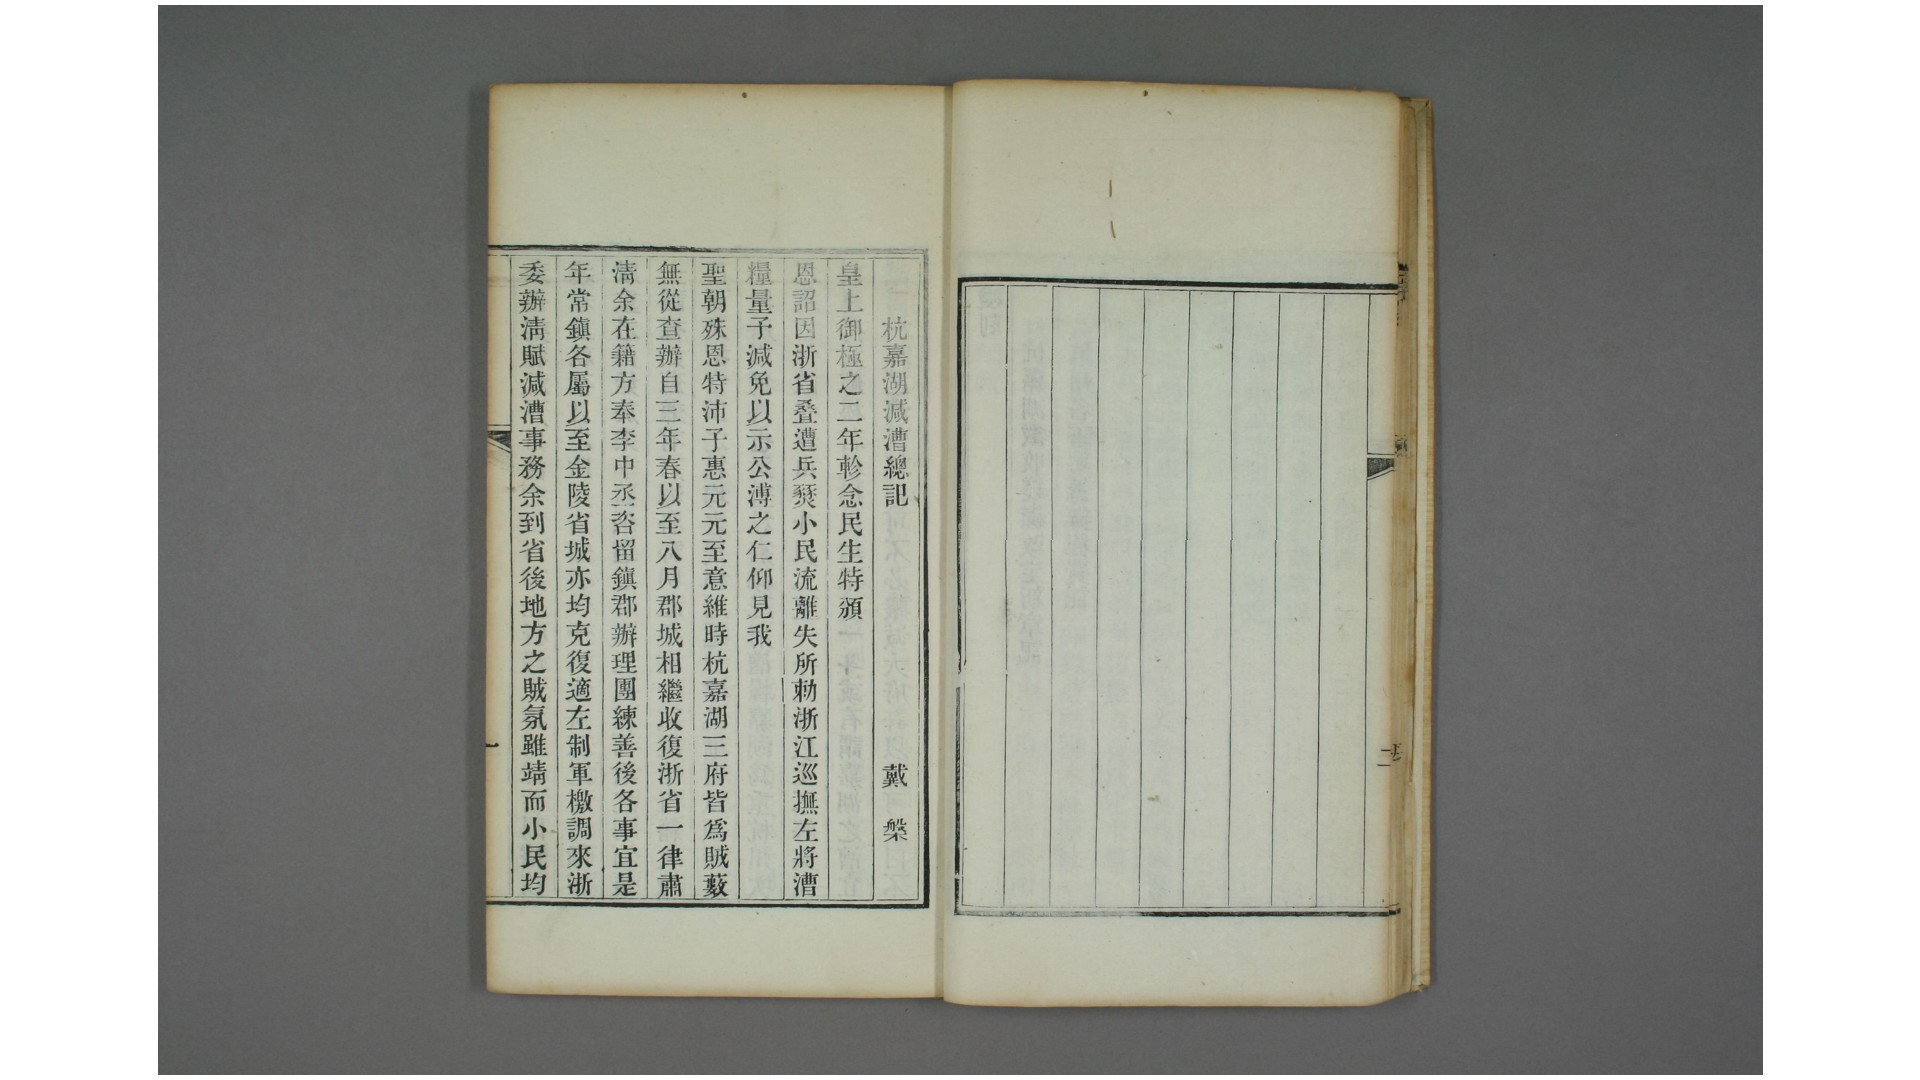 杭嘉湖減漕總記　戴槃
皇上御極之二年軫念民生特頒
恩詔因浙省叠遭兵燹小民流離失所勅浙江巡撫左將漕
糧量予減免以示公溥之仁仰見我
聖朝殊恩特沛子惠元元至意維時杭嘉湖三府皆爲賊藪
無從查辦自三年春以至八月郡城相繼收復浙省一律肅
淸余在籍方奉李中丞咨留鎭郡辦理團練善後各事宜是
年常鎭各屬以至金陵省城亦均克復適左制軍檄調來浙
委辦淸賦減漕事務余到省後地方之賊氛雖靖而小民均
一
二